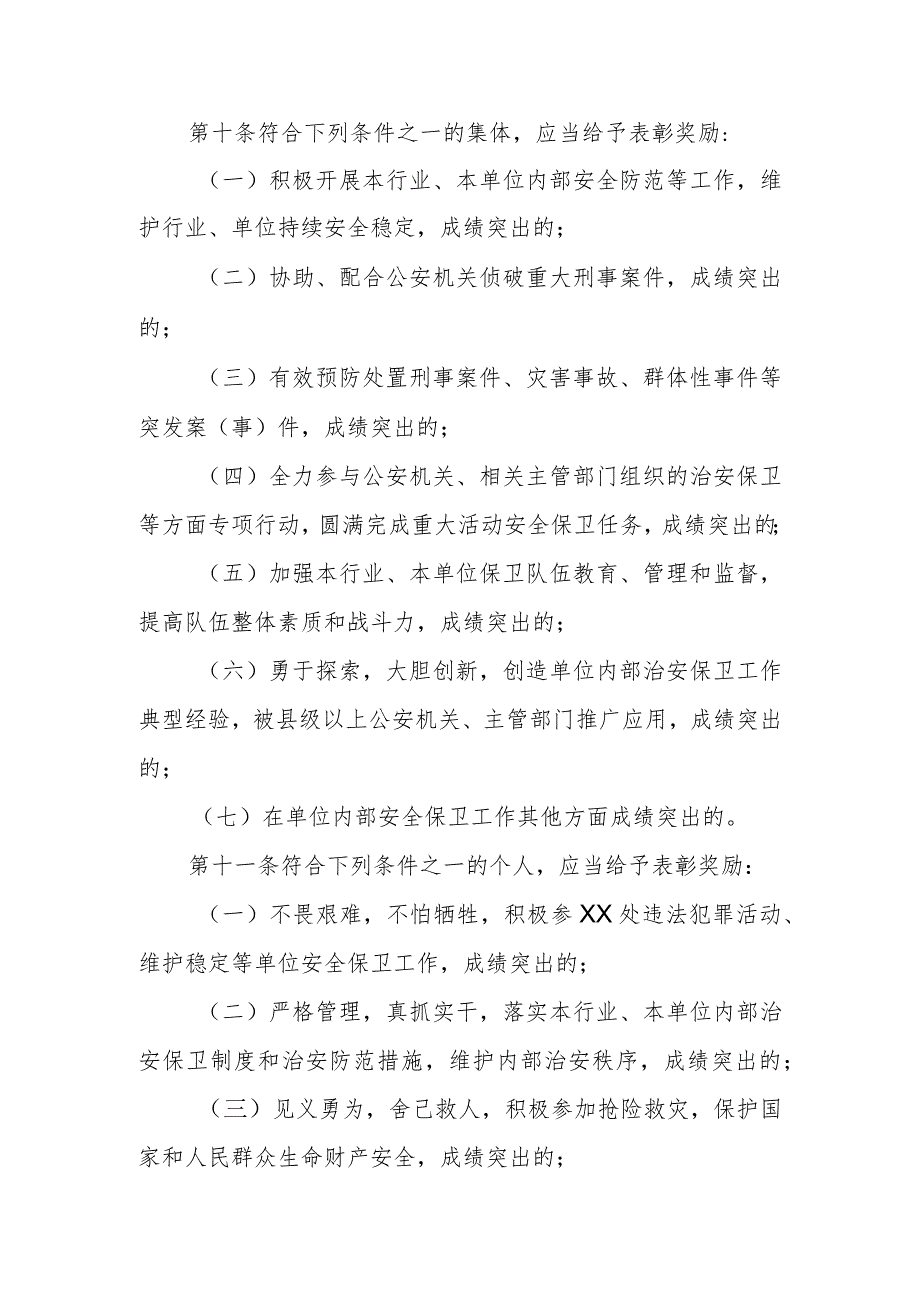 第十条符合下列条件之一的集体，应当给予表彰奖励:
（一）积极开展本行业、本单位内部安全防范等工作，维
护行业、单位持续安全稳定，成绩突出的；
（二）协助、配合公安机关侦破重大刑事案件，成绩突出
的；
（三）有效预防处置刑事案件、灾害事故、群体性事件等
突发案（事）件，成绩突出的；
（四）全力参与公安机关、相关主管部门组织的治安保卫
等方面专项行动，圆满完成重大活动安全保卫任务，成绩突出的；
（五）加强本行业、本单位保卫队伍教育、管理和监督，
提高队伍整体素质和战斗力，成绩突出的；
（六）勇于探索，大胆创新，创造单位内部治安保卫工作
典型经验，被县级以上公安机关、主管部门推广应用，成绩突出
的；
（七）在单位内部安全保卫工作其他方面成绩突出的。
第十一条符合下列条件之一的个人，应当给予表彰奖励：
（一）不畏艰难，不怕牺牲，积极参 XX 处违法犯罪活动、
维护稳定等单位安全保卫工作，成绩突出的；
（二）严格管理，真抓实干，落实本行业、本单位内部治
安保卫制度和治安防范措施，维护内部治安秩序，成绩突出的；
（三）见义勇为，舍己救人，积极参加抢险救灾，保护国
家和人民群众生命财产安全，成绩突出的；